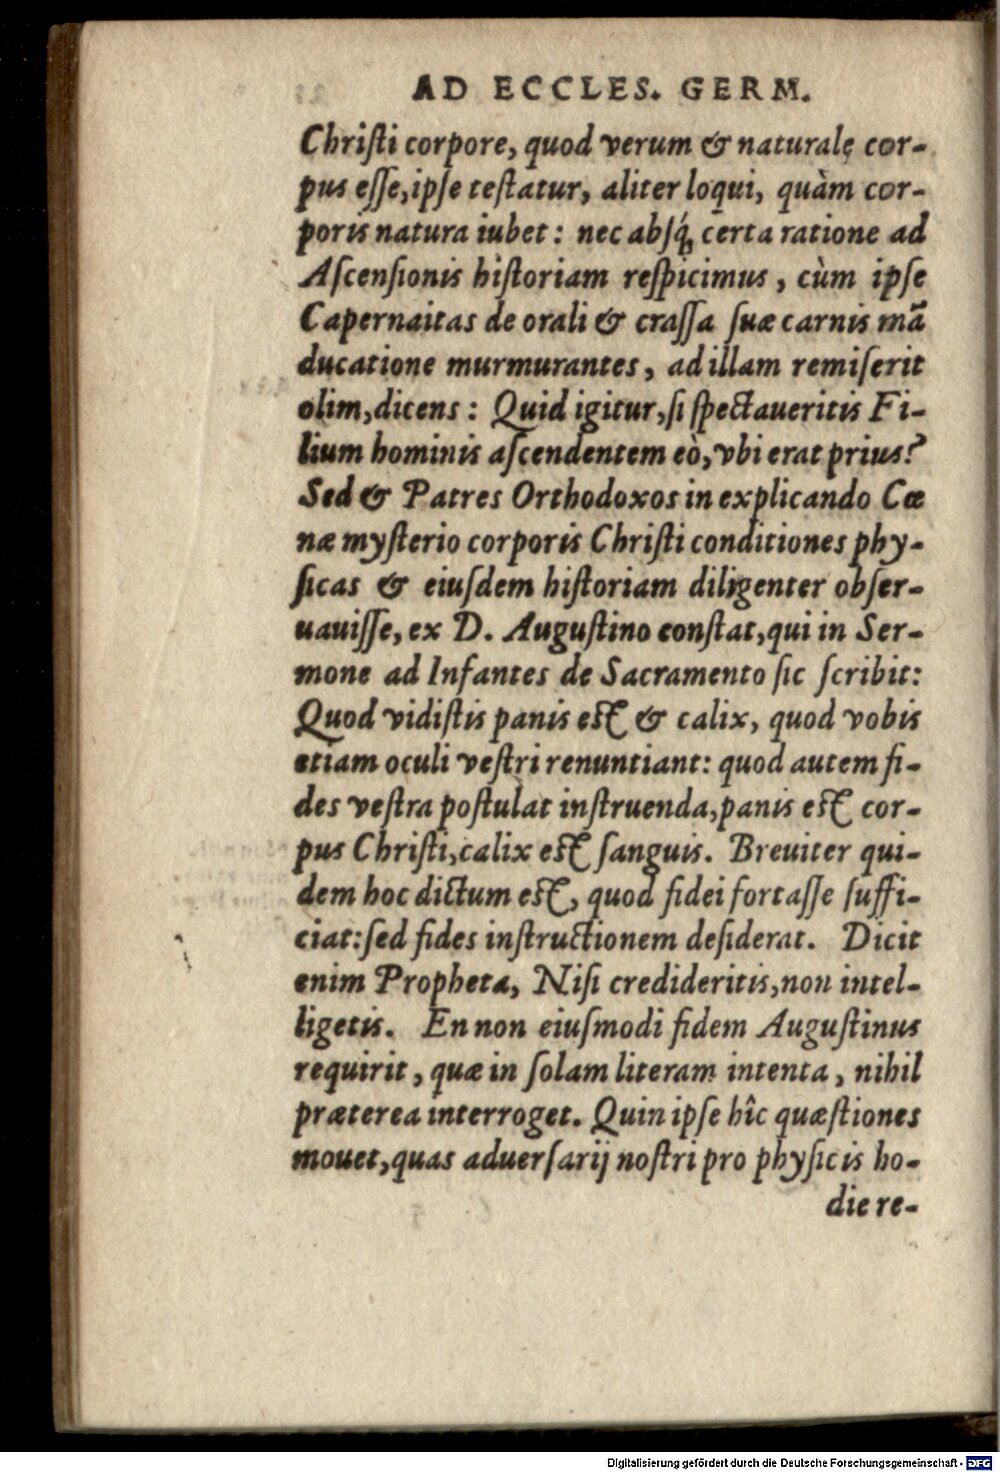 AD ECCLES. GERM.
Chriſti corpore, quod verum & naturale cor-
pus eſſe, ipſe teſtatur, aliter loqui, quàm cor-
poris natura iubet: nec abſq́; certa ratione ad
Aſcenſionis hiſtoriam reſpicimus, cùm ipſe
Capernaitas de orali & craſſa ſuæ carnis mã
ducatione murmurantes, ad illam remiſerit
olim, dicens: Quid igitur, ſi ſpectaueritis Fi-
lium hominis aſcendentem eò, vbi erat prius?
Sed & Patres Orthodoxos in explicando Cœ
næ myſterio corporis Chriſti conditiones phy-
ſicas & eiuſdem hiſtoriam diligenter obſer-
uauiſſe, ex D. Auguſtino conſtat, qui in Ser-
mone ad Infantes de Sacramento ſic ſcribit:
Quod vidiſtis panis eſt & calix, quod vobis
etiam oculi veſtri renuntiant: quod autem fi-
des veſtra poſtulat inſtruenda, panis eſt cor-
pus Chriſti, calix eſt ſanguis. Breuiter qui-
dem hoc dictum eſt, quod fidei fortaſſe ſuffi-
ciat: ſed fides inſtructionem deſiderat. Dicit
enim Propheta, Niſi credideritis, non intel-
ligetis. En non eiuſmodi fidem Auguſtinus
requirit, quæ in ſolam literam intenta, nihil
præterea interroget. Quin ipſe hîc quæſtiones
mouet, quas aduerſarij noſtri pro phyſicis ho-
die re-
Digitalisierung gefördert durch die Deutsche Forschungsgemeinschaft - DFG